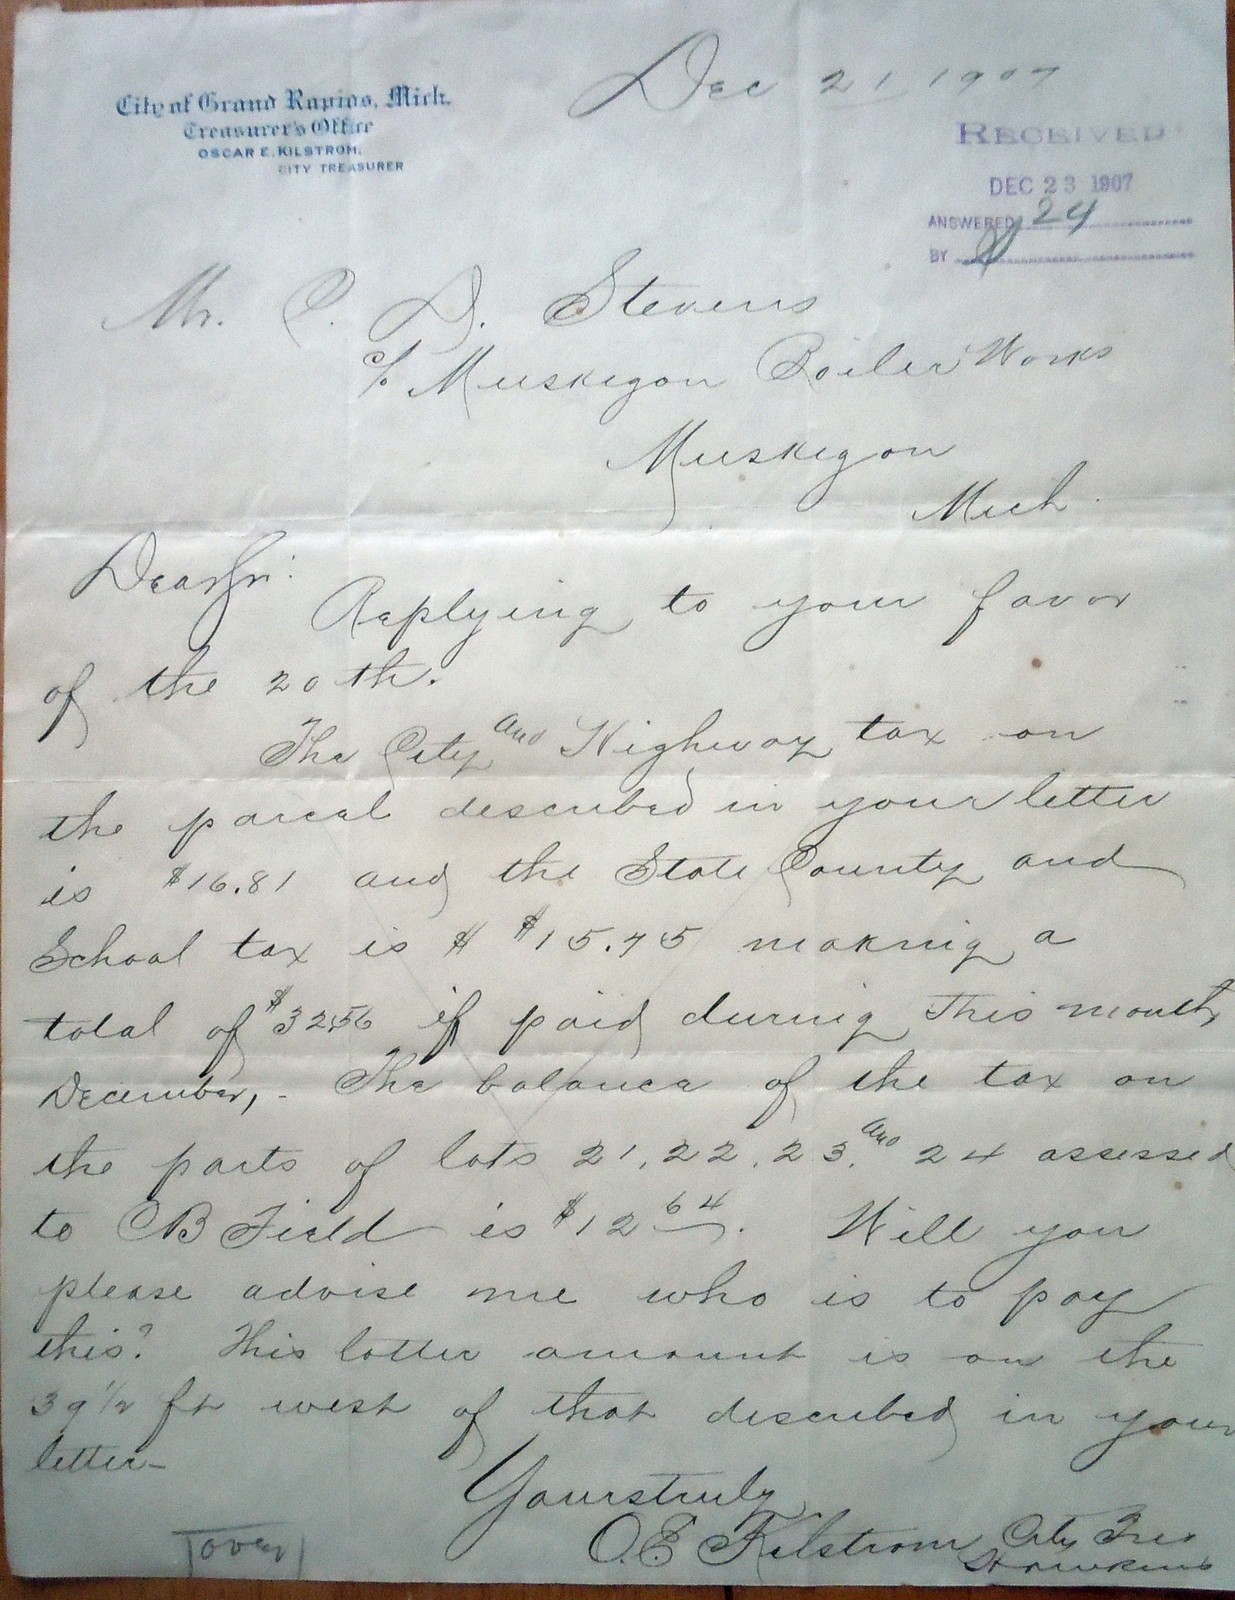 Dec 21 1907
City of Grand Rapids, Mich.
Treasurer's Office
OSCAR E. KILSTROM,
CITY TREASURER
RECEIVED
DEC 23 1907
ANSWERED 24
BY
Mr. C. D. Stevens
c/o Muskegon Boiler Works
Muskegon
Mich.
Dear Sir:
Replying to your favor
of the 20th.
The City and Highway tax on
the parcel described in your letter
is $16.81 and the State County and
School tax is $ $15.75 making a
total of $32.56 if paid during this month,
December, - The balance of the tax on
the parts of lots 21, 22, 23, and 24 assessed
to CB Field is $12 64. Will you
please advise me who is to pay
this? This latter amount is on the
39 1/2 ft west of that described in your
letter-
Yours truly
O.E. Kilstrom City Tres
over